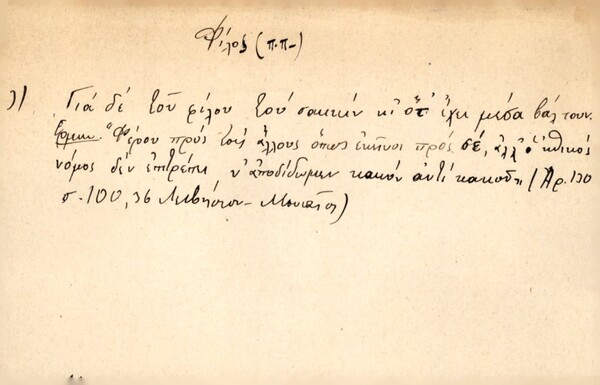 Φίλος (π.π-)
Γιά δέ τοῦ φίλου τοῦ σακκιών κι' ὅτ' ἔχει μέσα βάλ' τουν.
Ἑρμην. "Φέρου πρός τούς ἄλλους ὅπως ἐκεῖνοι πρός σέ, ἀλλ' ὁ ἠθικός
νόμος δέν ἐπιτρέπει ν' ἀποδίδωμεν κακόν ἀντί κακοῦ" (Ἀρ. 130
σ. 100, 36 Λιβήσιον - Μουσαῖος)